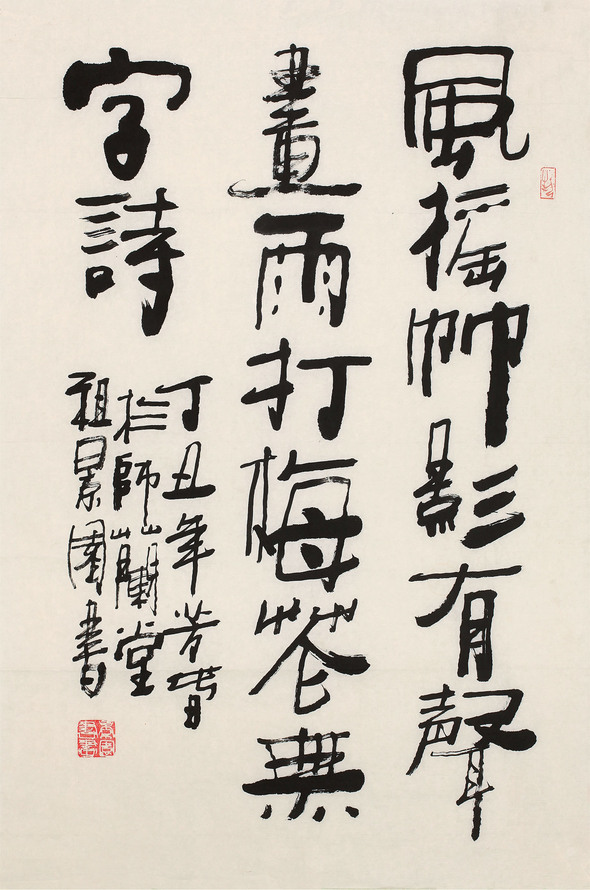 風搖竹影有聲
畫雨打梅花無
字詩
丁丑年芳春
於師蘭堂
祖景園書